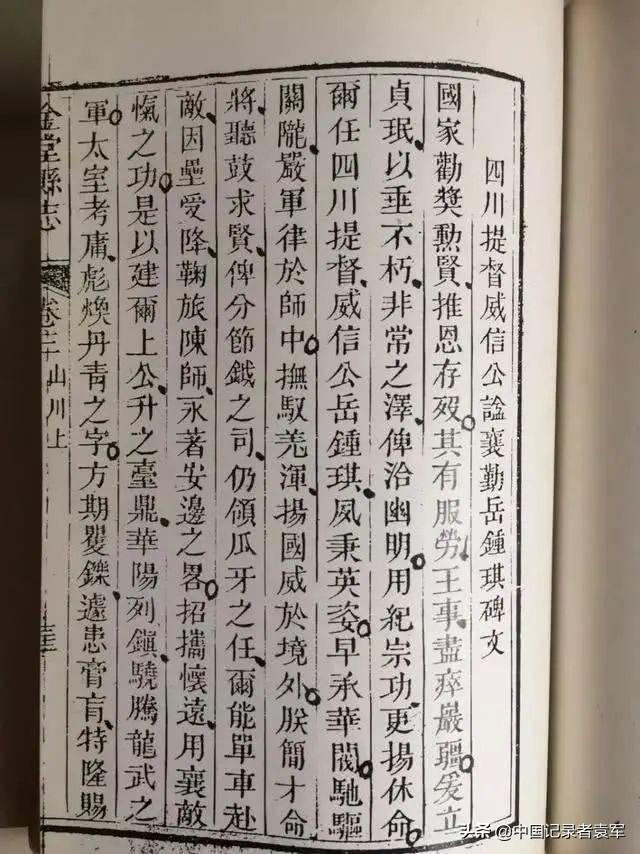 四川提督威信公謚襄勤岳鍾琪碑文
國家勸獎勲賢推恩存歿其有服勞王事盡瘁嚴疆爰立
貞珉以垂不朽非常之澤俾洽幽明用紀宗功更揚休命
爾任四川提督威信公岳鍾琪夙秉英姿早承華閥馳驅
關隴嚴軍律於師中撫馭羌渾揚國威於境外朕簡才命
將聽鼓求賢俾分節鉞之司仍領瓜牙之任爾能單車赴
敵因壘受降鞠旅陳師永著安邊之畧招攜懷遠用襄敵
愾之功是以建爾上公升之臺鼎華陽列鎭驍騰龍武之
軍太室考庸彪煥丹青之字方期矍鑠遽患膏肓特隆賜
金堂縣志
卷二 山川上
頭条 @中国记录者袁军